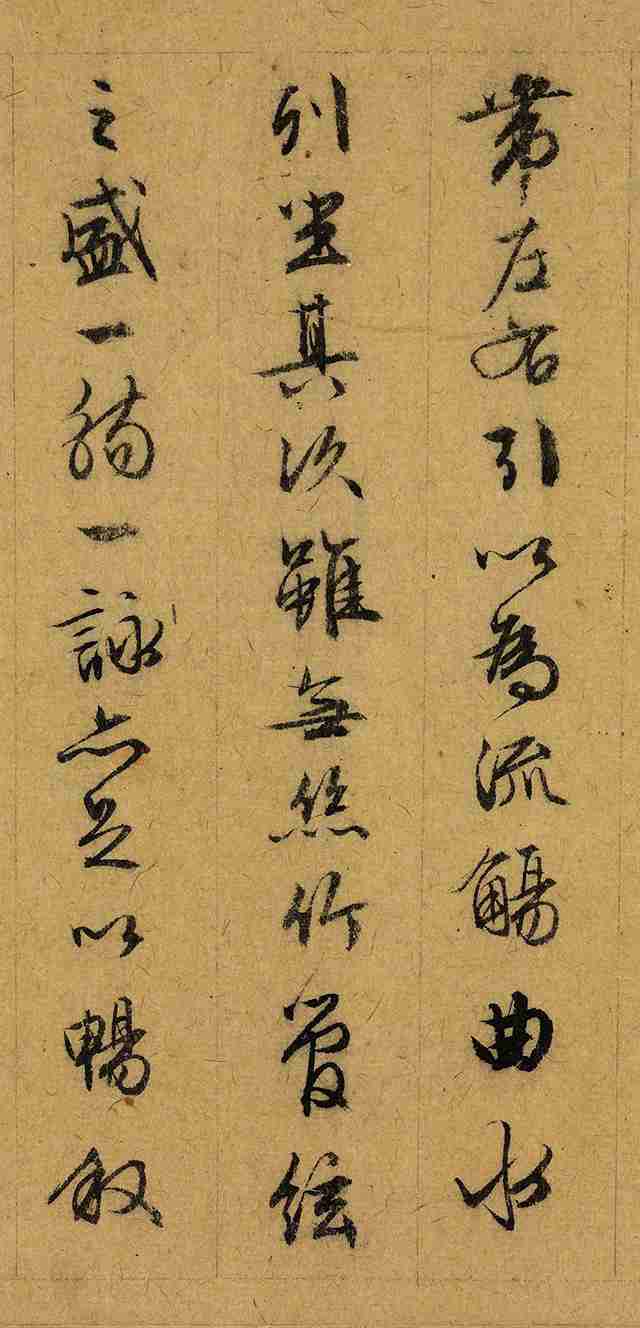 帶左右引以為流觴曲水
列坐其次雖無絲竹管絃
之盛一觴一詠亦足以暢敘